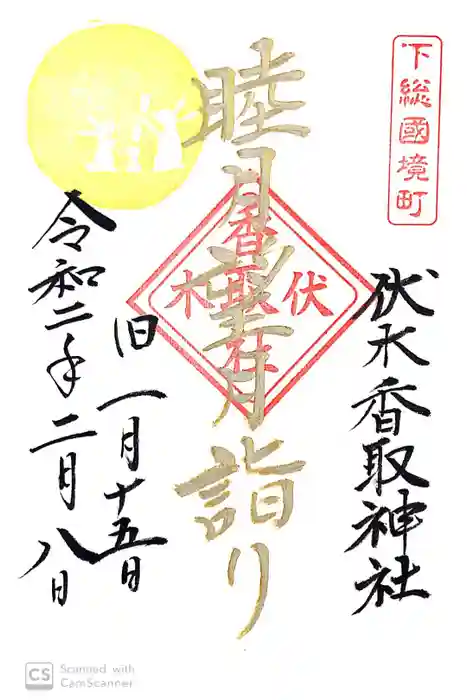 下総國境町
伏木香取神社
睦月望月詣り
伏木
香取社
旧 一月十五日
令和二年二月八日
CS
Scanned with
CamScanner